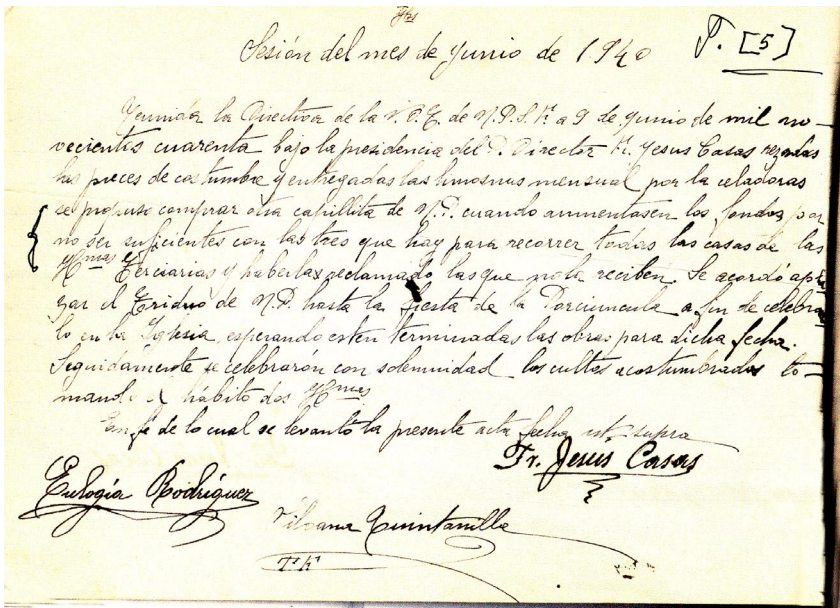 Sesión del mes de Junio de 1940
P. [5]
Reunida la Directiva de la V.O.T. de N.P.S.F. a 9 de Junio de mil no-
vecientos cuarenta bajo la presidencia del P. Director Fr. Jesus Casas rezadas
las preces de costumbre y entregadas las limosnas mensual por la celadoras
se propuso comprar otra capillita de N.P. cuando aumentasen los fondos por
no ser suficientes con las tres que hay para recorrer todas las casas de las
Hmas Terciarias y haberlas reclamado las que no la reciben. Se acordó
zar el Triduo de N.P. hasta la fiesta de la Porciuncula a fin de celebrar
lo en la Iglesia, esperando esten terminadas las obras para dicha fecha.
Seguidamente se celebrarón con solemnidad los cultos acostumbrados to-
mando el hábito dos Hmas
En fe de lo cual se levantó la presente acta fecha ut supra
Fr. Jesus Casas
Eulogia Rodríguez
Quintanilla